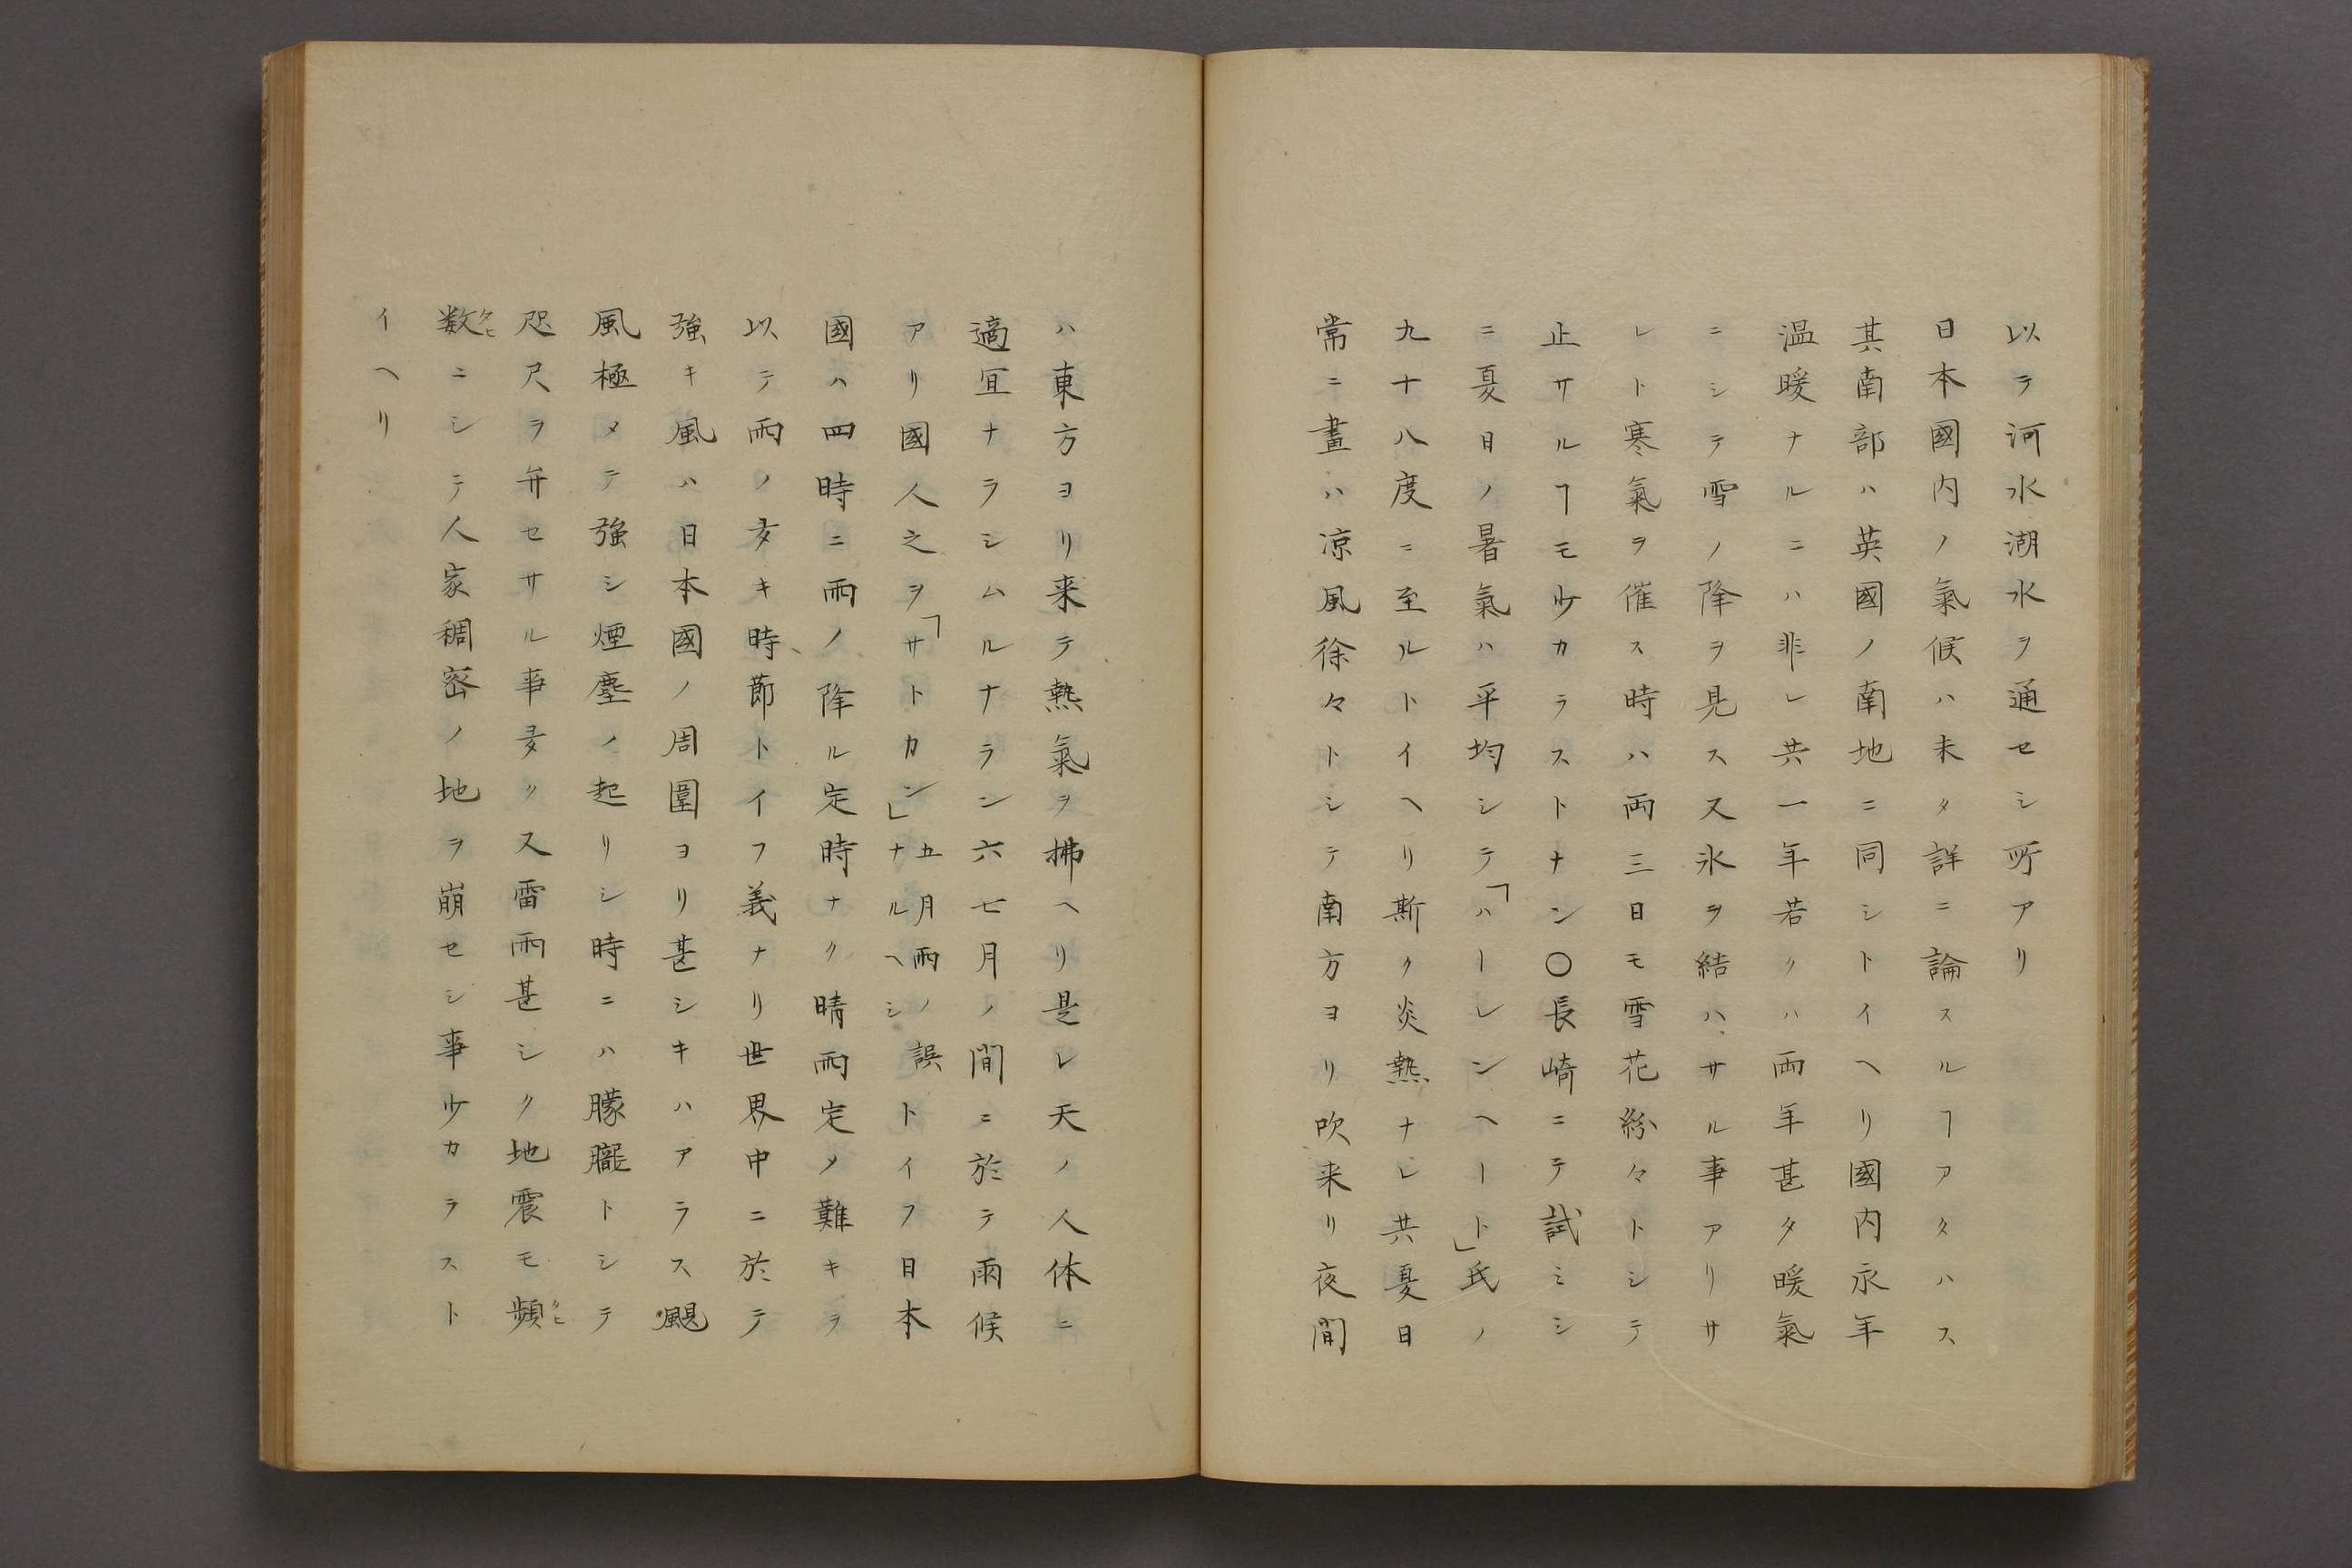 以テ河水湖水ヲ通セシ所アリ
日本國内ノ氣候ハ未タ詳ニ論スルヿアタハス
其南部ハ英國ノ南地ニ同シトイヘリ國内永年
温暖ナルニハ非レ共一年若クハ両年甚タ暖氣
ニシテ雪ノ降ヲ見ス又氷ヲ結ハサル事アリサ
レト寒氣ヲ催ス時ハ両三日モ雪花紛々トシテ
止サルヿモ少カラストナン〇長崎ニテ試ミシ
ニ夏日ノ暑氣ハ平均シテ「ハーレンヘート」氏ノ
九十八度ニ至ルトイヘリ斯ク炎熱ナレ共夏日
常ニ晝ハ凉風徐々トシテ南方ヨリ吹来リ夜間
ハ東方ヨリ来テ熱氣ヲ拂ヘリ是レ天ノ人体ニ
適宜ナラシムルナラン六七月ノ間ニ於テ雨候
アリ國人之ヲ「サトカン」五月雨ノ誤ナルヘシトイフ日本
國ハ四時ニ雨ノ降ル定時ナク晴雨定メ難キヲ
以テ雨ノ多キ時節トイフ義ナリ世界中ニ於テ
強キ風ハ日本國ノ周圍ヨリ甚シキハアラス颶
風極メテ強シ煙塵ノ起リシ時ニハ朦朧トシテ
咫尺ヲ弁セサル事多ク又雷雨甚シク地震モ頻クヒ
数クヒニシテ人家稠密ノ地ヲ崩セシ事少カラスト
イヘリ